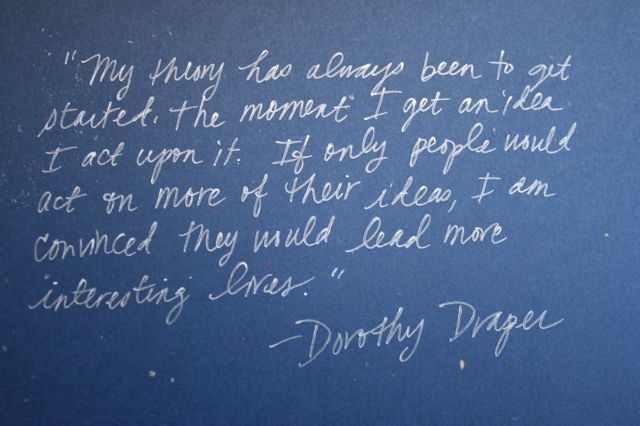 "My theory has always been to get
started. The moment I get an idea
I act upon it. If only people would
act on more of their ideas, I am
convinced they would lead more
interesting lives."
-Dorothy Draper